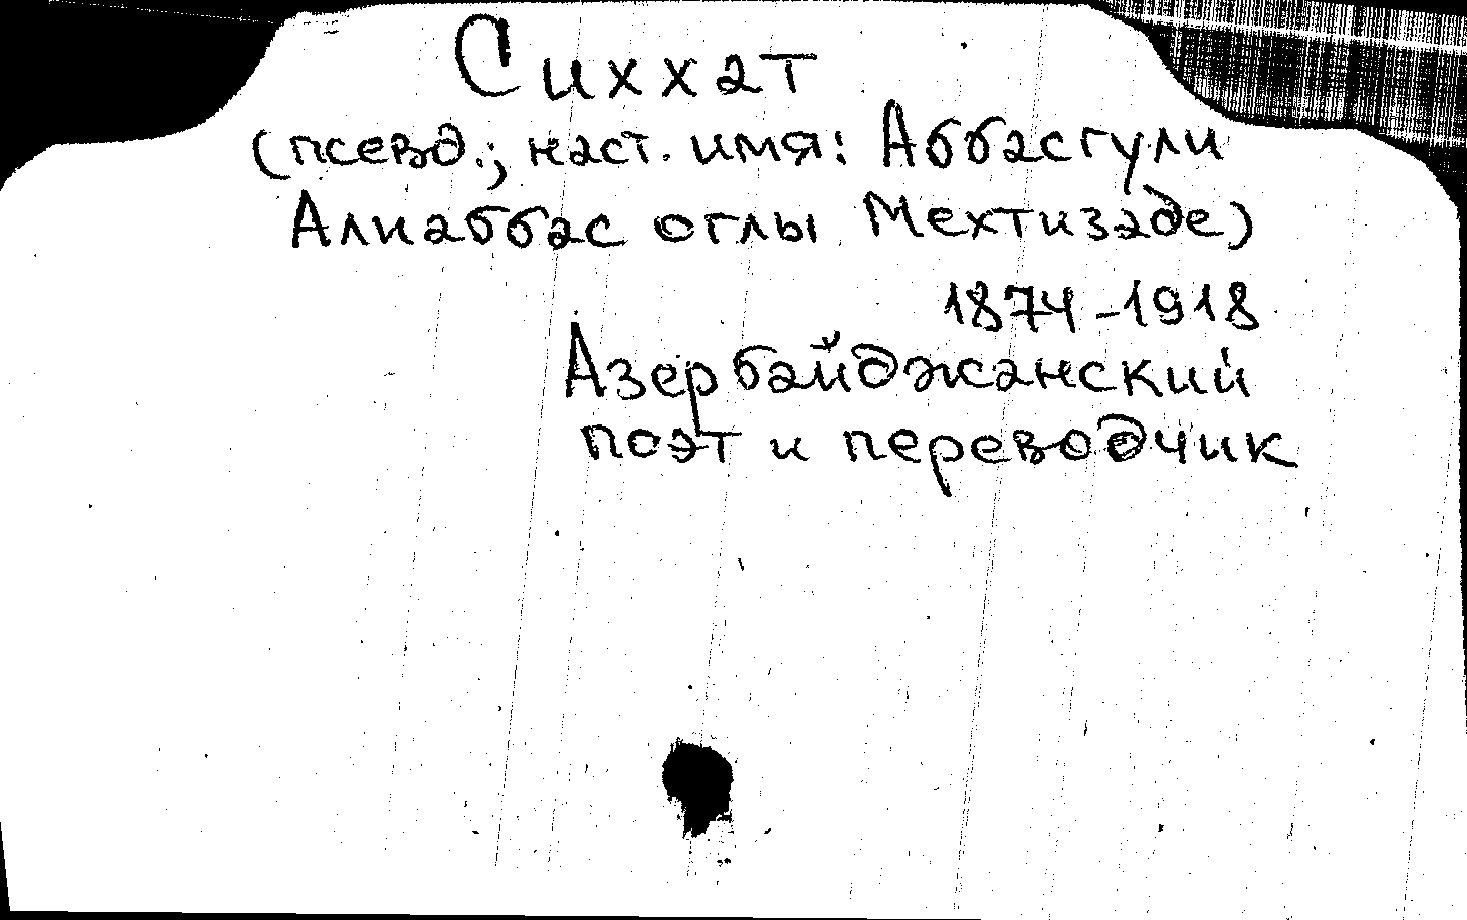 Сиххат
(псевд.; наст. имя: Аббасгули
Алиаббас оглы Мехтизаде)
1874-1918
Азербайджанский
поэт и переводчик